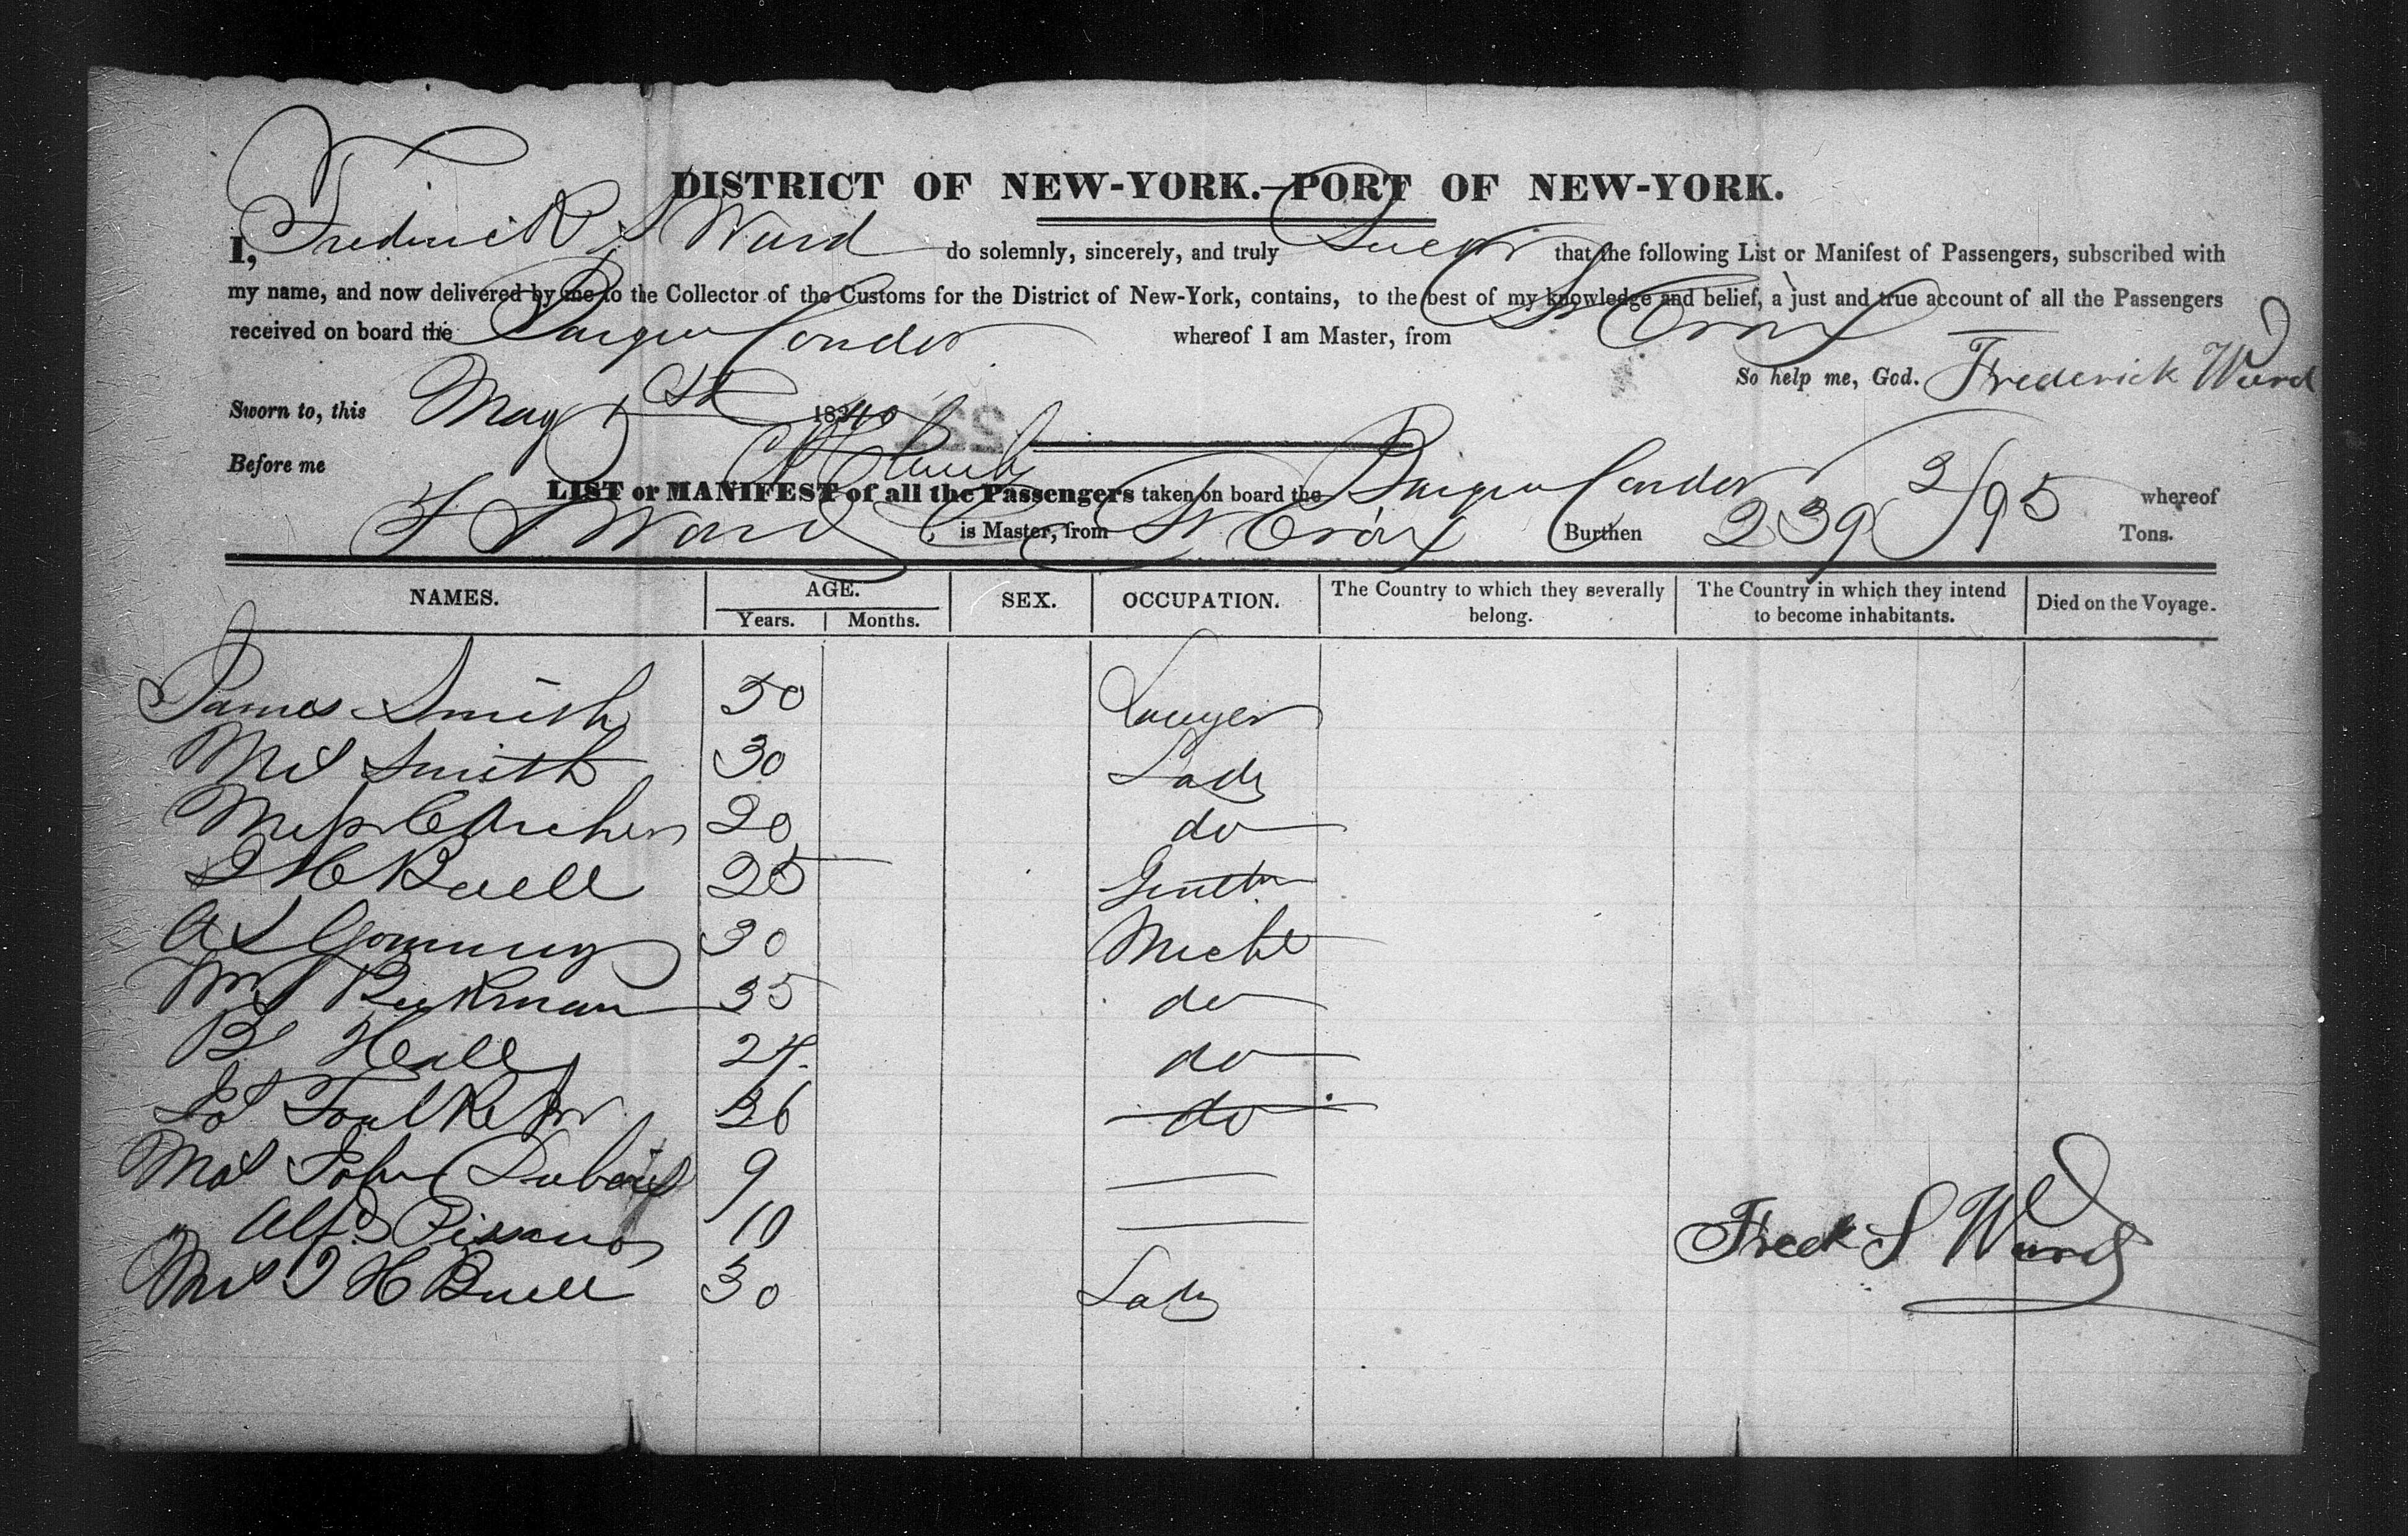 DISTRICT OF NEW-YORK.—PORT OF NEW-YORK.
I, Frederick S Ward do solemnly, sincerely, and truly Swear that the following List or Manifest of Passengers, subscribed with
my name, and now delivered by me to the Collector of the Customs for the District of New-York, contains, to the best of my knowledge and belief, a just and true account of all the Passengers
received on board the Barque Condor whereof I am Master, from St Croix
So help me, God. Frederick Ward
Sworn to, this May 1st 1840
Before me
LIST or MANIFEST of all the Passengers taken on board the Barque Condor whereof
F S Ward is Master, from St Croix Burthen 239 3/95 Tons.
NAMES. AGE. SEX. OCCUPATION. The Country to which they severally belong. The Country in which they intend to become inhabitants. Died on the Voyage.
Years. Months.
James Smith 50 Lawyer
Mrs Smith 30 Lady
Miss C Archer 20 do
I H Buell 25 Gentln
A S 30 Mecht
Wm Beekman 35 do
B Hall 24 do
36 do
Mas John Dubois 9 —
" Alfd 10 —
Mrs I H Buell 30 Lady
Fredk S Ward